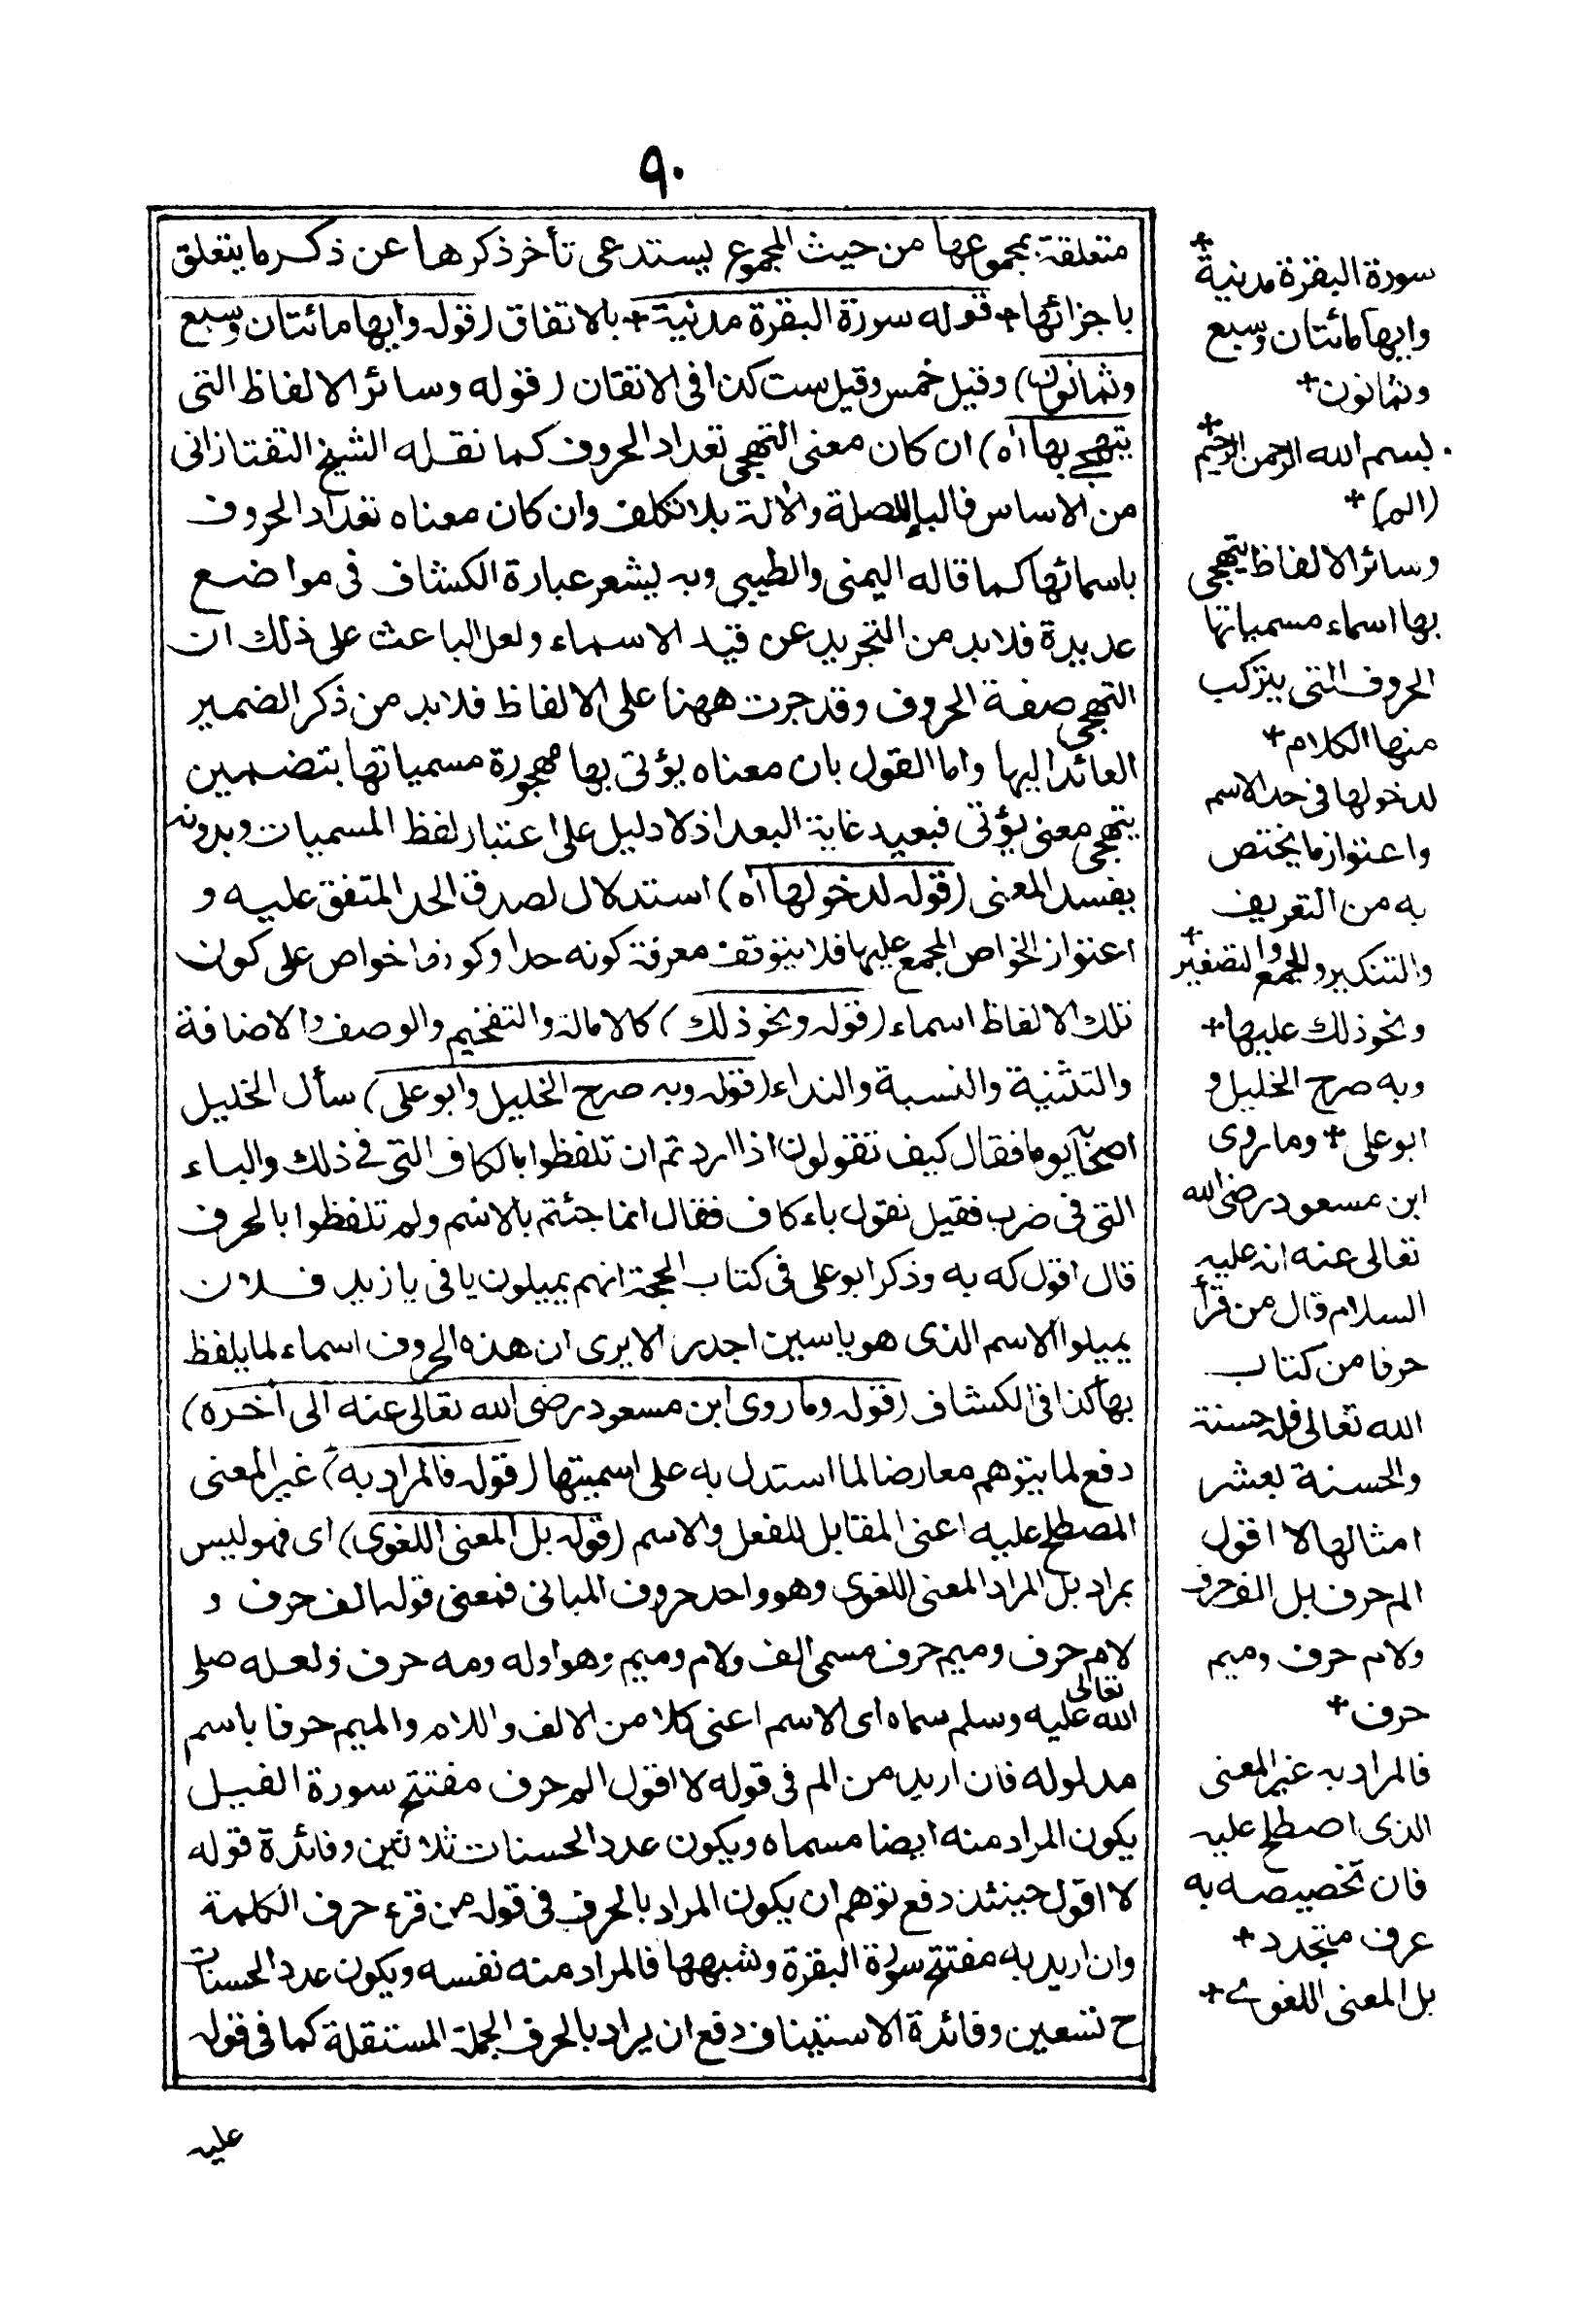 ٩٠
متعلقة بمجموعها من حيث المجموع يستدعى تأخر ذكرها عن ذكر ما يتعلق
باجزائها + قوله سورة البقرة مدنية + بالاتفاق (قوله وايها مائتان وسبع
وثمانون) وقيل خمس وقيل ست كذا فى الاتقان (قوله وسائر الالفاظ التى
يتهجى بها اه) ان كان معنى التهجى تعداد الحروف كما نقله الشيخ التفتازانى
من الاساس فالباء للصلة والألة بلا تكلف وان كان معناه تعداد الحروف
باسمائها كما قاله اليمنى والطيبى وبه يشعر عبارة الكشاف فى مواضع
عديدة فلا بد من التجريد عن قيد الاسماء ولعل الباعث على ذلك ان
التهجى صفة الحروف وقد جرت ههنا على الالفاظ فلا بد من ذكر الضمير
العائد اليها واما القول بان معناه يؤتى بها مهجورة مسمياتها بتضمين
يتهجى معنى يؤتى فبعيد غاية البعد اذ لا دليل على اعتبار لفظ المسميات وبدونه
يفسد المعنى (قوله لدخولها اه) استدلال لصدق الحد المتفق عليه و
اعتوار الخواص المجمع عليها فلا يتوقف معرفة كونه حدا وكونها خواص على كون
تلك الالفاظ اسماء (قوله ونحو ذلك) كالامالة والتفخيم والوصف والاضافة
والتثنية والنسبة والنداء (قوله وبه صرح الخليل وابو على) سأل الخليل
اصحابه يوما فقال كيف تقولون اذا اردتم ان تلفظوا بالكاف التى فى ذلك والباء
التى فى ضرب فقيل نقول باء كاف فقال انما جئتم بالاسم ولم تلفظوا بالحرف
قال اقول كه به وذكر ابو على فى كتاب الحجة انهم يميلون يا فى يا زيد فلان
يميلوا الاسم الذى هو ياسين اجدر الا يرى ان هذه الحروف اسماء لما يلفظ
بها كذا فى الكشاف (قوله وما روى ابن مسعود رضى الله تعالى عنه الى أخره)
دفع لما يتوهم معارضا لما استدل به على اسميتها (قوله فالمراد به) غير المعنى
المصطلح عليه اعنى المقابل للفعل والاسم (قوله بل المعنى اللغوى) اى فهو ليس
بمراد بل المراد المعنى اللغوى وهو واحد حروف المبانى فمعنى قوله الف حرف و
لام حرف وميم حرف مسمى الف ولام وميم وهو اوله ومه حرف ولعله صلى
الله تعالى عليه وسلم سماه اى الاسم اعنى كلا من الالف واللام والميم حرفا باسم
مدلوله فان اريد من الم فى قوله لا اقول الم حرف مفتتح سورة الفيل
يكون المراد منه ايضا مسماه ويكون عدد الحسنات ثلاثين وفائدة قوله
لا اقول حينئذ دفع توهم ان يكون المراد بالحرف فى قوله من قرء حرف الكلمة
وان اريد به مفتتح سورة البقرة وشبهها فالمراد منه نفسه ويكون عدد الحسنات
ح تسعين وفائدة الاستيناف دفع ان يراد بالحرف الجملة المستقلة كما فى قوله
عليه
سورة البقرة مدنية +
وايها مائتان وسبع
وثمانون +
بسم الله الرحمن الرحيم +
(الم) +
وسائر الالفاظ يتهجى
بها اسماء مسمياتها
الحروف التى يتركب
منها الكلام +
لدخولها فى حد الاسم
واعتوار ما يختص
به من التعريف
والتنكير والجمع والتصغير +
ونحو ذلك عليها +
وبه صرح الخليل و
ابو على + وما روى
ابن مسعود رضى الله
تعالى عنه انه عليه
السلام قال من قرأ
حرفا من كتاب
الله تعالى فله حسنة
والحسنة بعشر
امثالها لا اقول
الم حرف بل الف حرف
ولام حرف وميم
حرف +
فالمراد به غير المعنى
الذى اصطلح عليه
فان تخصيصه به
عرف متجدد +
بل المعنى اللغوى +